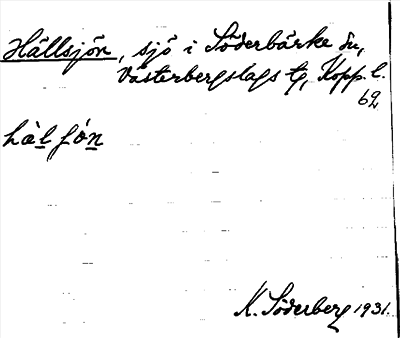 Hällsjön, sjö i Söderbärke sn,
Västerbergslags tg, Kopp. l.
62
hàl ʃón
K. Söderberg 1931.